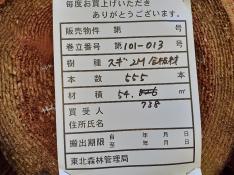 毎度お買上げいただき
ありがとうございます。
販売物件 第 号
巻立番号 第101-013号
樹種 スギ 2M 合板材
本数 555 本
材積 54. ㎥
738
買受人
住所氏名
搬出期限 自 年 月 日
至 年 月 日
東北森林管理局